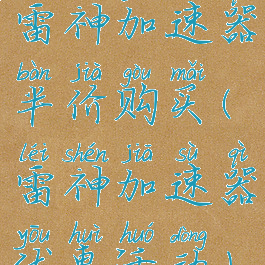 雷神加速器
bàn jià gòu mǎi
半价购买(
léi shén jiā sù qì
雷神加速器
yōu huì huó dòng
优惠活动)